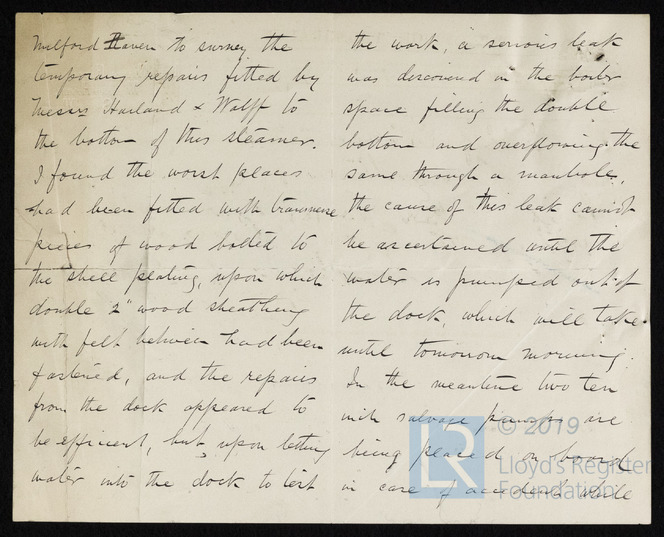 Milford Haven to survey the
temporary repairs fitted by
Messrs Harland & Wolff to
the bottom of this steamer.
I found the worst places
had been fitted with transverse
pieces of wood bolted to
the shell plating, upon which
double 2" wood sheathing
with felt between had been
fastened, and the repairs
from the dock appeared to
be efficient, but, upon letting
water into the dock to test
the work, a serious leak
was discovered in the boiler
space filling the double
bottom and overflowing the
same through a manhole,
the cause of this leak cannot
be ascertained until the
water is pumped out of
the dock, which will take
until tomorrow morning.
In the meantime two ten
inch salvage pumps are
being placed on board
in case of accident while
LR
© 2019
Lloyd's Register
Foundation